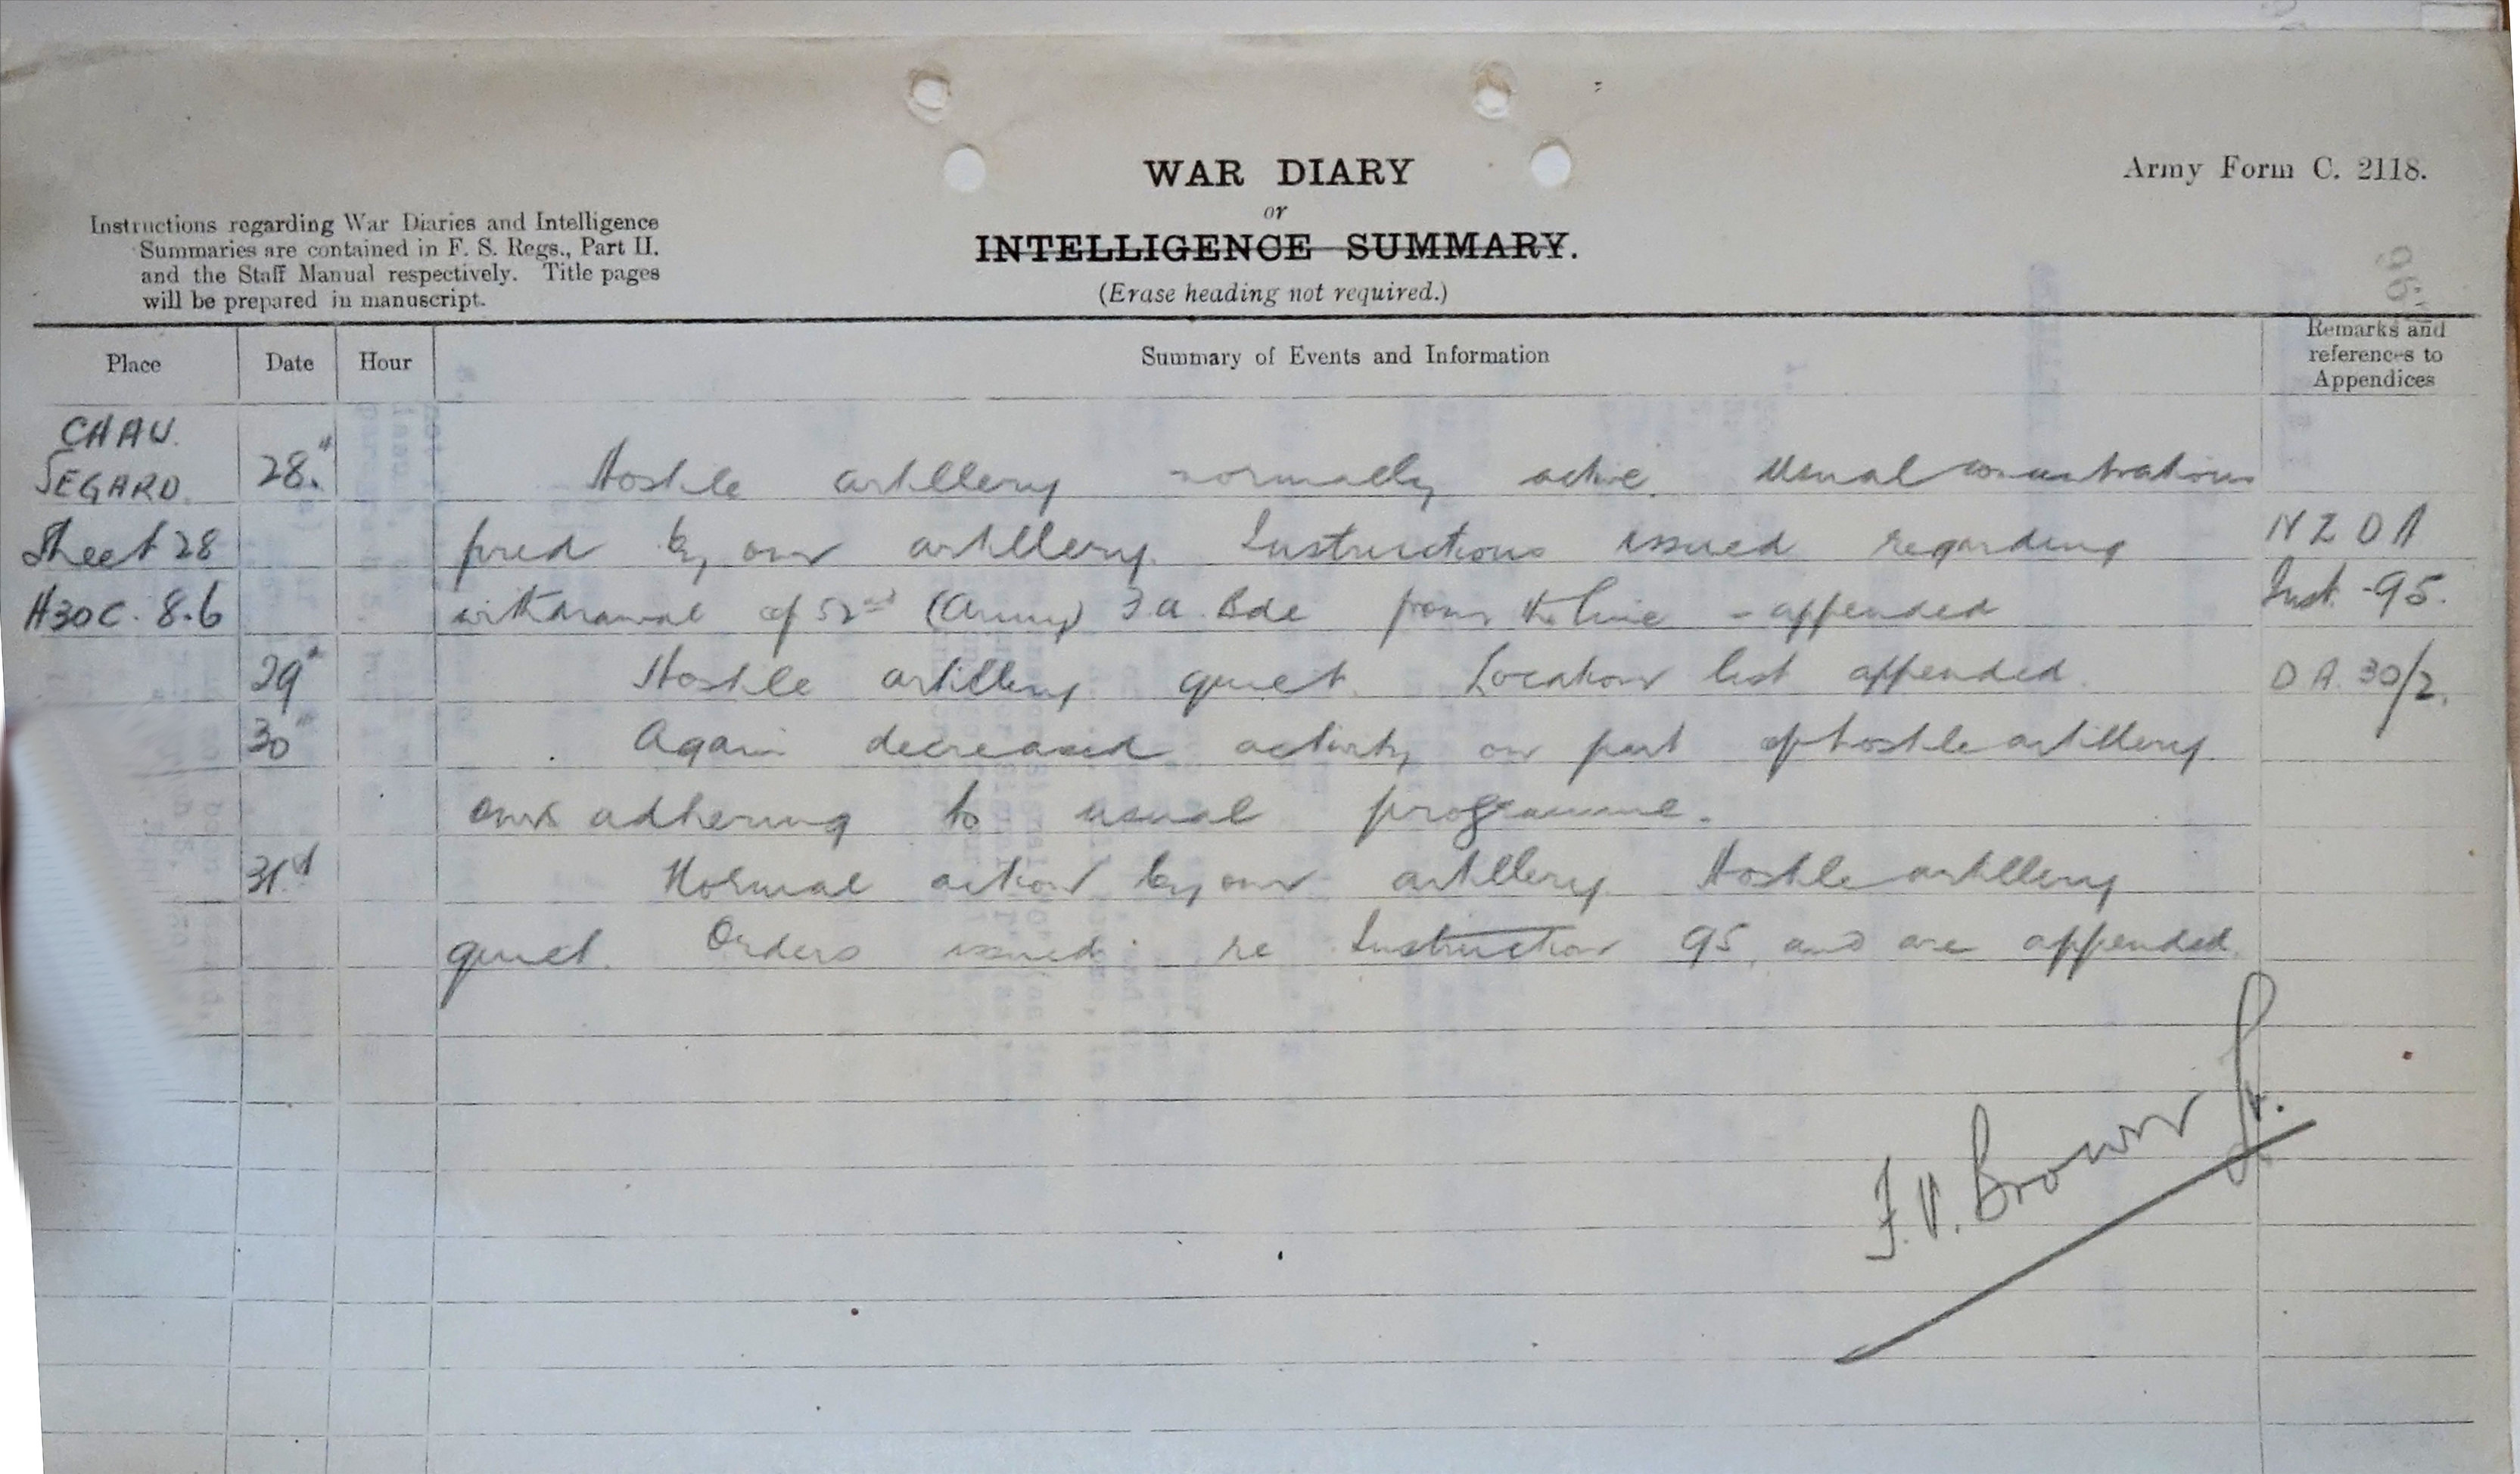 WAR DIARY
or
INTELLIGENCE SUMMARY.
(Erase heading not required.)
Army Form C. 2118.
Instructions regarding War Diaries and Intelligence
Summaries are contained in F. S. Regs., Part II.
and the Staff Manual respectively. Title pages
will be prepared in manuscript.
Place Date Hour Summary of Events and Information Remarks and references to Appendices
CHAU.
SEGARD. 28.th Hostile artillery normally active. Usual concentrations
Sheet 28 fired by our artillery. Instructions issued regarding N Z D A
H30C. 8.6 withdrawal of 52nd (Army) F.A. Bde from the line - appended Inst. -95.
29th Hostile artillery quiet. Location list appended. D A. 30/2.
30th Again decreased activity on part of hostile artillery.
ours adhering to usual programme.
31st Normal action by our artillery. Hostile artillery
quiet. Orders issued re Instruction 95, and are appended.
F. V. Brown